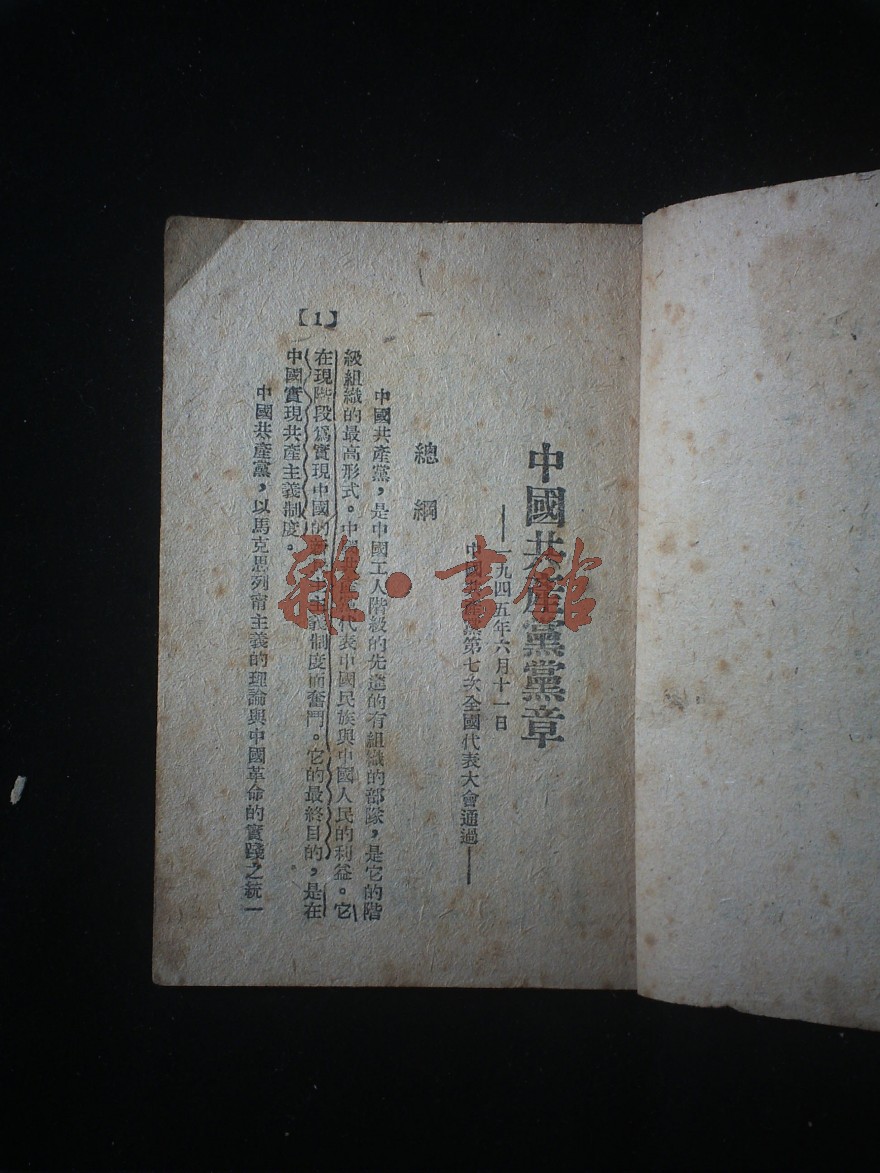 中國共產黨黨章
——一九四五年六月十一日
中國共產黨第七次全國代表大會通過——
總綱
中國共產黨，是中國工人階級的先進的有組織的部隊，是它的階
級組織的最高形式。中國共產黨代表中國民族與中國人民的利益。它
在現階段爲實現中國的新民主主義制度而奮鬥。它的最終目的，是在
中國實現共產主義制度。
中國共產黨，以馬克思列甯主義的理論與中國革命的實踐之統一
【1】
雜·書館